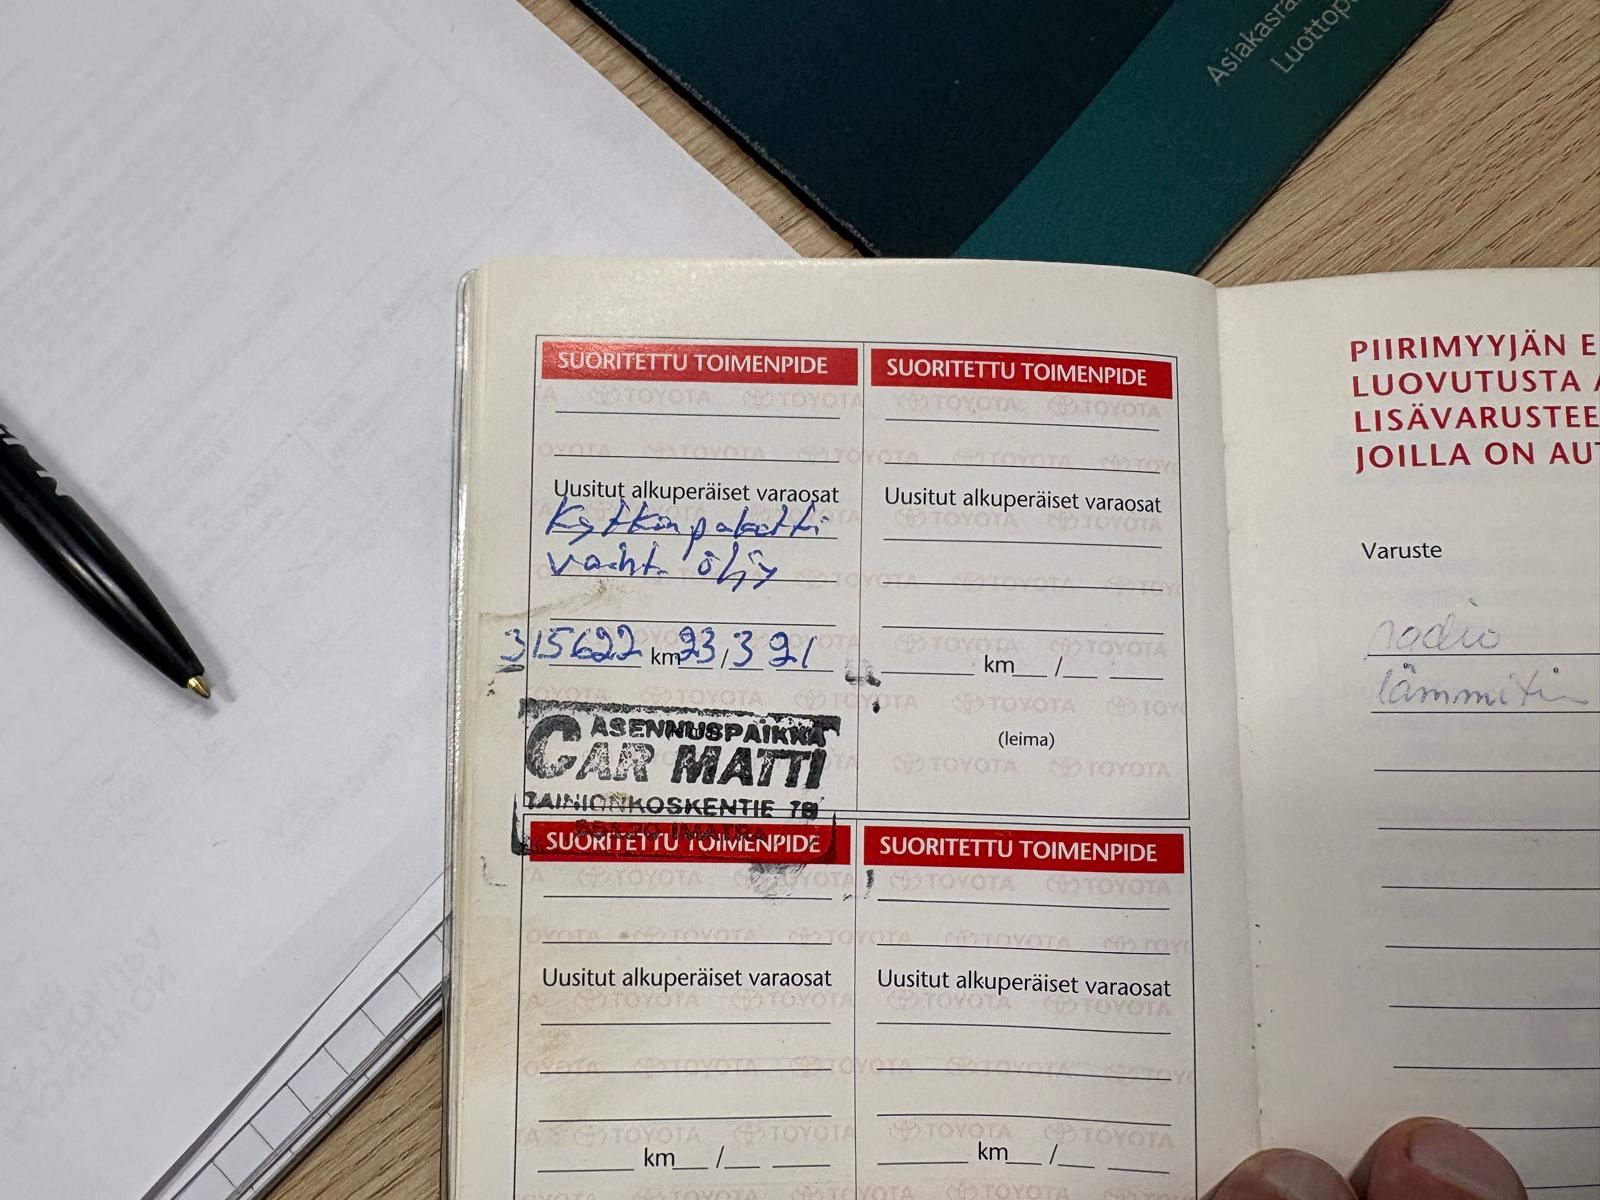 Asiakasra
Luottop
SUORITETTU TOIMENPIDE
Uusitut alkuperäiset varaosat
Kytkinpaketti
vaiht. öljy
315622 km 23/3 21
ASENNUSPAIKKA
CAR MATTI
TAINIONKOSKENTIE 78
IMATRA
SUORITETTU TOIMENPIDE
Uusitut alkuperäiset varaosat
km /
(leima)
SUORITETTU TOIMENPIDE
Uusitut alkuperäiset varaosat
km /
SUORITETTU TOIMENPIDE
Uusitut alkuperäiset varaosat
km /
PIIRIMYYJÄN E
LUOVUTUSTA A
LISÄVARUSTEE
JOILLA ON AUT
Varuste
radio
lämmitin
TOYOTA